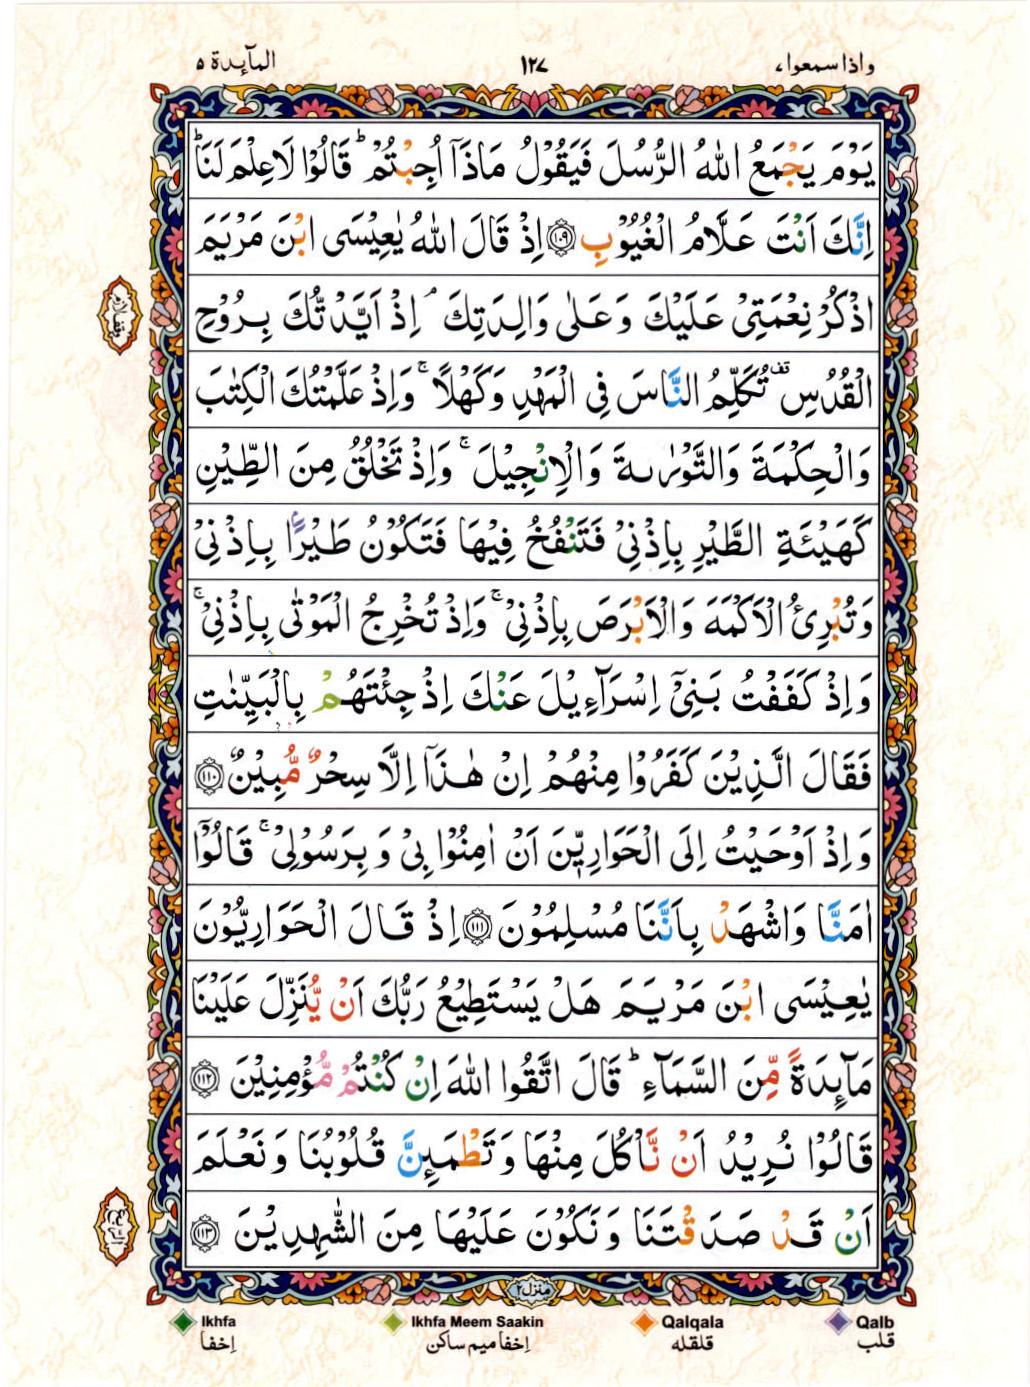 المآىِٕدة ۵
۱۲۷
واذا سمعوا،
یَوْمَ یَجْمَعُ اللّٰهُ الرُّسُلَ فَیَقُوْلُ مَاذَاۤ اُجِبْتُمْ ؕ قَالُوْا لَا عِلْمَ لَنَا ؕ
اِنَّكَ اَنْتَ عَلَّامُ الْغُیُوْبِ ﴿۱۰۹﴾ اِذْ قَالَ اللّٰهُ یٰعِیْسَی ابْنَ مَرْیَمَ
اذْكُرْ نِعْمَتِیْ عَلَیْكَ وَ عَلٰی وَالِدَتِكَ ۘ اِذْ اَیَّدْتُّكَ بِرُوْحِ
وقف لازم
الْقُدُسِ قف تُكَلِّمُ النَّاسَ فِی الْمَهْدِ وَ كَهْلًا ۚ وَ اِذْ عَلَّمْتُكَ الْكِتٰبَ
وَ الْحِكْمَةَ وَ التَّوْرٰىةَ وَ الْاِنْجِیْلَ ۚ وَ اِذْ تَخْلُقُ مِنَ الطِّیْنِ
كَهَیْـَٔةِ الطَّیْرِ بِاِذْنِیْ فَتَنْفُخُ فِیْهَا فَتَكُوْنُ طَیْرًۢا بِاِذْنِیْ
وَ تُبْرِئُ الْاَكْمَهَ وَ الْاَبْرَصَ بِاِذْنِیْ ۚ وَ اِذْ تُخْرِجُ الْمَوْتٰی بِاِذْنِیْ ۚ
وَ اِذْ كَفَفْتُ بَنِیْۤ اِسْرَآءِیْلَ عَنْكَ اِذْ جِئْتَهُمْ بِالْبَیِّنٰتِ
فَقَالَ الَّذِیْنَ كَفَرُوْا مِنْهُمْ اِنْ هٰذَاۤ اِلَّا سِحْرٌ مُّبِیْنٌ ﴿۱۱۰﴾
وَ اِذْ اَوْحَیْتُ اِلَی الْحَوَارِیّٖنَ اَنْ اٰمِنُوْا بِیْ وَ بِرَسُوْلِیْ ۚ قَالُوْۤا
اٰمَنَّا وَ اشْهَدْ بِاَنَّنَا مُسْلِمُوْنَ ﴿۱۱۱﴾ اِذْ قَالَ الْحَوَارِیُّوْنَ
یٰعِیْسَی ابْنَ مَرْیَمَ هَلْ یَسْتَطِیْعُ رَبُّكَ اَنْ یُّنَزِّلَ عَلَیْنَا
مَآىِٕدَةً مِّنَ السَّمَآءِ ؕ قَالَ اتَّقُوا اللّٰهَ اِنْ كُنْتُمْ مُّؤْمِنِیْنَ ﴿۱۱۲﴾
قَالُوْا نُرِیْدُ اَنْ نَّاْكُلَ مِنْهَا وَ تَطْمَىِٕنَّ قُلُوْبُنَا وَ نَعْلَمَ
اَنْ قَدْ صَدَقْتَنَا وَ نَكُوْنَ عَلَیْهَا مِنَ الشّٰهِدِیْنَ ﴿۱۱۳﴾
منزل ۲
Ikhfa
Ikhfa Meem Saakin
Qalqala
Qalb
إخفا
إخفا ميم ساكن
قلقله
قلب